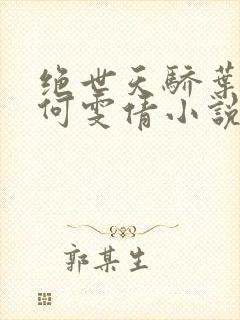 绝世天骄葉
何雯倩小説
郭某生